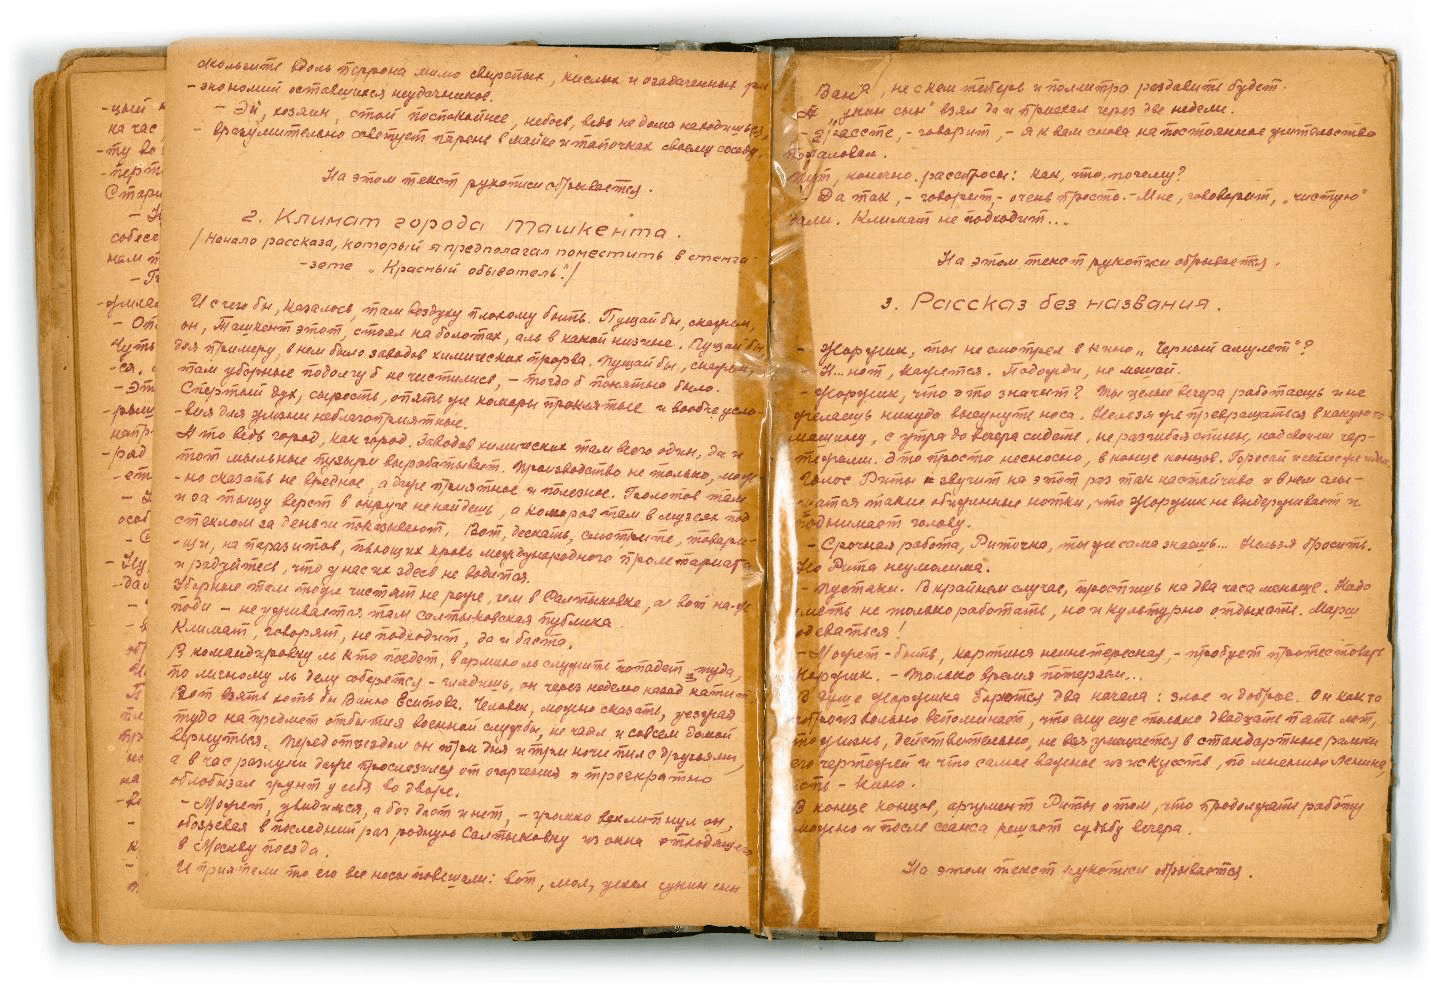 скользите вдоль перрона мимо свирепых, кислых и озадаченных физ
-экономий оставшихся неудачников.
- Эй, хозяин, стой поспокойнее, небось, ведь не дома находишься,
- вразумительно советует парень в майке и тапочках своему соседу.
На этом текст рукописи обрывается.
2. Климат города Ташкента.
/Начало рассказа, который я предполагал поместить в стенга-
-зете „Красный обыватель"./
И с чего бы, казалось, там воздуху плохому быть. Пущай бы, скажем,
он, Ташкент этот, стоял на болотах, аль в какой низине. Пущай бы
для примеру, в нем было заводов химических прорва. Пущай бы, скажем,
там уборные подолгу б не чистились, - тогда б понятно было.
Спертый дух, сырость, опять же комары проклятые и вообще усло-
-вия для жизни неблагоприятные.
А то ведь город, как город. Заводов химических там всего один, да и
тот мыльные пузыри вырабатывает. Производство не только, мож-
-но сказать не вредное, а даже приятное и полезное. Болотов там
и за тыщу верст в округе не найдешь, а комаров там в музеях под
стеклом за деньги показывают. Вот, дескать, смотрите, товари-
-щи, на паразитов, пьющих кровь международного пролетариата
и радуйтесь, что у нас их здесь не водится.
Уборные там тоже чистят не реже, чем в Салтыковке, а вот на-ж
поди - не уживается там салтыковская публика.
Климат, говорят, не подходит, да и баста.
В командировку ль кто поедет, в армию ль служить попадет туда,
по личному ль делу соберется - глядишь, он через неделю назад катит.
Вот взять хоть бы Ваню Осипова. Человек, можно сказать, уезжал
туда на предмет отбытия военной службы, не чаял и совсем домой
вернуться. Перед отъездом он три дня и три ночи пил с друзьями,
а в час разлуки даже прослезился от огорчения и троекратно
облобызал грунт у себя во дворе.
- Может, увидимся, а бог даст и нет, - громко воскликнул он,
обозревая в последний раз родную Салтыковку из окна отходящего
в Москву поезда.
И приятели то его все носы повешали: вот, мол, уехал сукин сын
Ваня, не с кем теперь и поллитра раздавить будет.
А „сукин сын" взял да и приехал через две недели.
- Здрассте, - говорит, - я к вам снова на постоянное жительство
пожаловал.
Тут, конечно расспросы: как, что, почему?
- Да так, - говорит, - очень просто. - Мне, говорит, „чистую"
дали. Климат не подходит...
На этом текст рукописи обрывается.
3. Рассказ без названия.
- Жоржик, ты не смотрел в кино „Черный амулет"?
- Н... нет, кажется. Подожди, не мешай.
- Жоржик, что это значит? Ты целые вечера работаешь и не
желаешь никуда высунуть носа. Нельзя ж превращаться в какую-то
машину, с утра до вечера сидеть, не разгибая спины, над своими чер-
тежами. Это просто несносно, в конце концов. Бросай и сейчас же идем.
Голос Риты звучит на этот раз так настойчиво и в нем слы-
шатся такие обиженные нотки, что Жоржик не выдерживает и
поднимает голову.
- Срочная работа, Риточка, ты же сама знаешь... Нельзя бросить.
Но Рита неумолима.
- Пустяки. В крайнем случае, проспишь на два часа меньше. Надо
уметь не только работать, но и культурно отдыхать. Марш
одеваться!
- Может - быть, картина неинтересная, - пробует протестовать
Жоржик. - Только время потеряем...
В душе Жоржика борются два начала: злое и доброе. Он как то
непроизвольно вспоминает, что ему еще только двадцать пять лет,
что жизнь, действительно, не вся умещается в стандартные рамки
его чертежей и что самое важное из искусств, по мнению Ленина,
есть - кино.
В конце концов, аргумент Риты о том, что продолжать работу
можно и после сеанса решает судьбу вечера.
На этом текст рукописи обрывается.